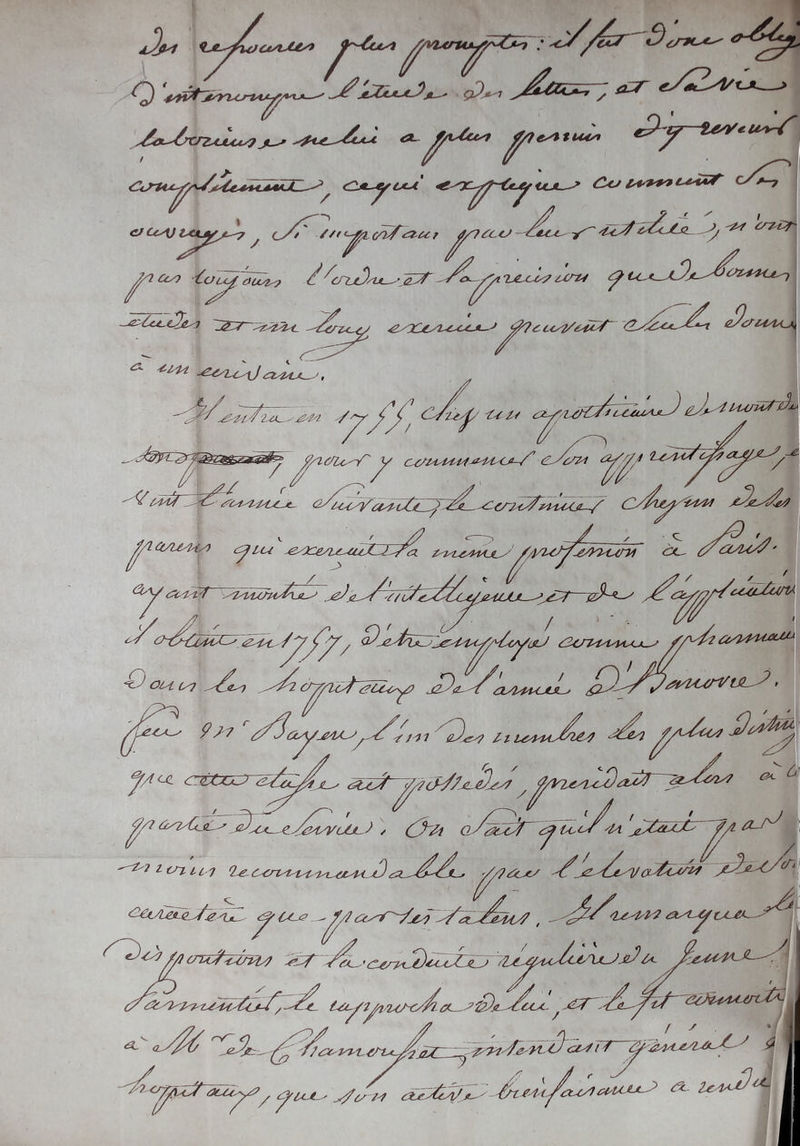 des ressources plus promptes : il fut donc oblig
d'interrompre l'étude des lettres, et sa vie
laborieuse ne lui a plus permis d'y revenir
complètement, ce qui explique comment ses
ouvrages, si importans par leur utilité, n'ont
pas toujours l'ordre et la précision que de bonnes
etudes et un long exercice peuvent seuls donne
à un ecrivain.
Il entra en 1755, chez un apothicaire de mont de
pour y commencer son apprentissage, e
vint l'année suivante, le continuer chez un de ses
parens qui exercait la même profession à Paris.
ayant montré de l'intelligence et de l'application
il obtint en 1757, d'etre employé comme pharmacie
dans les hopitaux de l'armée d'Hanovre.
feu Mr Bayen, l'un des membres les plus distin
que cette classe ait possédés, présidait alors à c
partie du service. On sait qu'il n'était pas
moins recommandable par l'elevation de so
caractère que par ses talens. Il remarqua le
dispositions et la conduite régulière du jeune
Parmentier, le rapprocha de lui, et le fit connoitr
à Mr de Chamousset, intendant général d
hopitaux, que son active bienfaisance a rendu